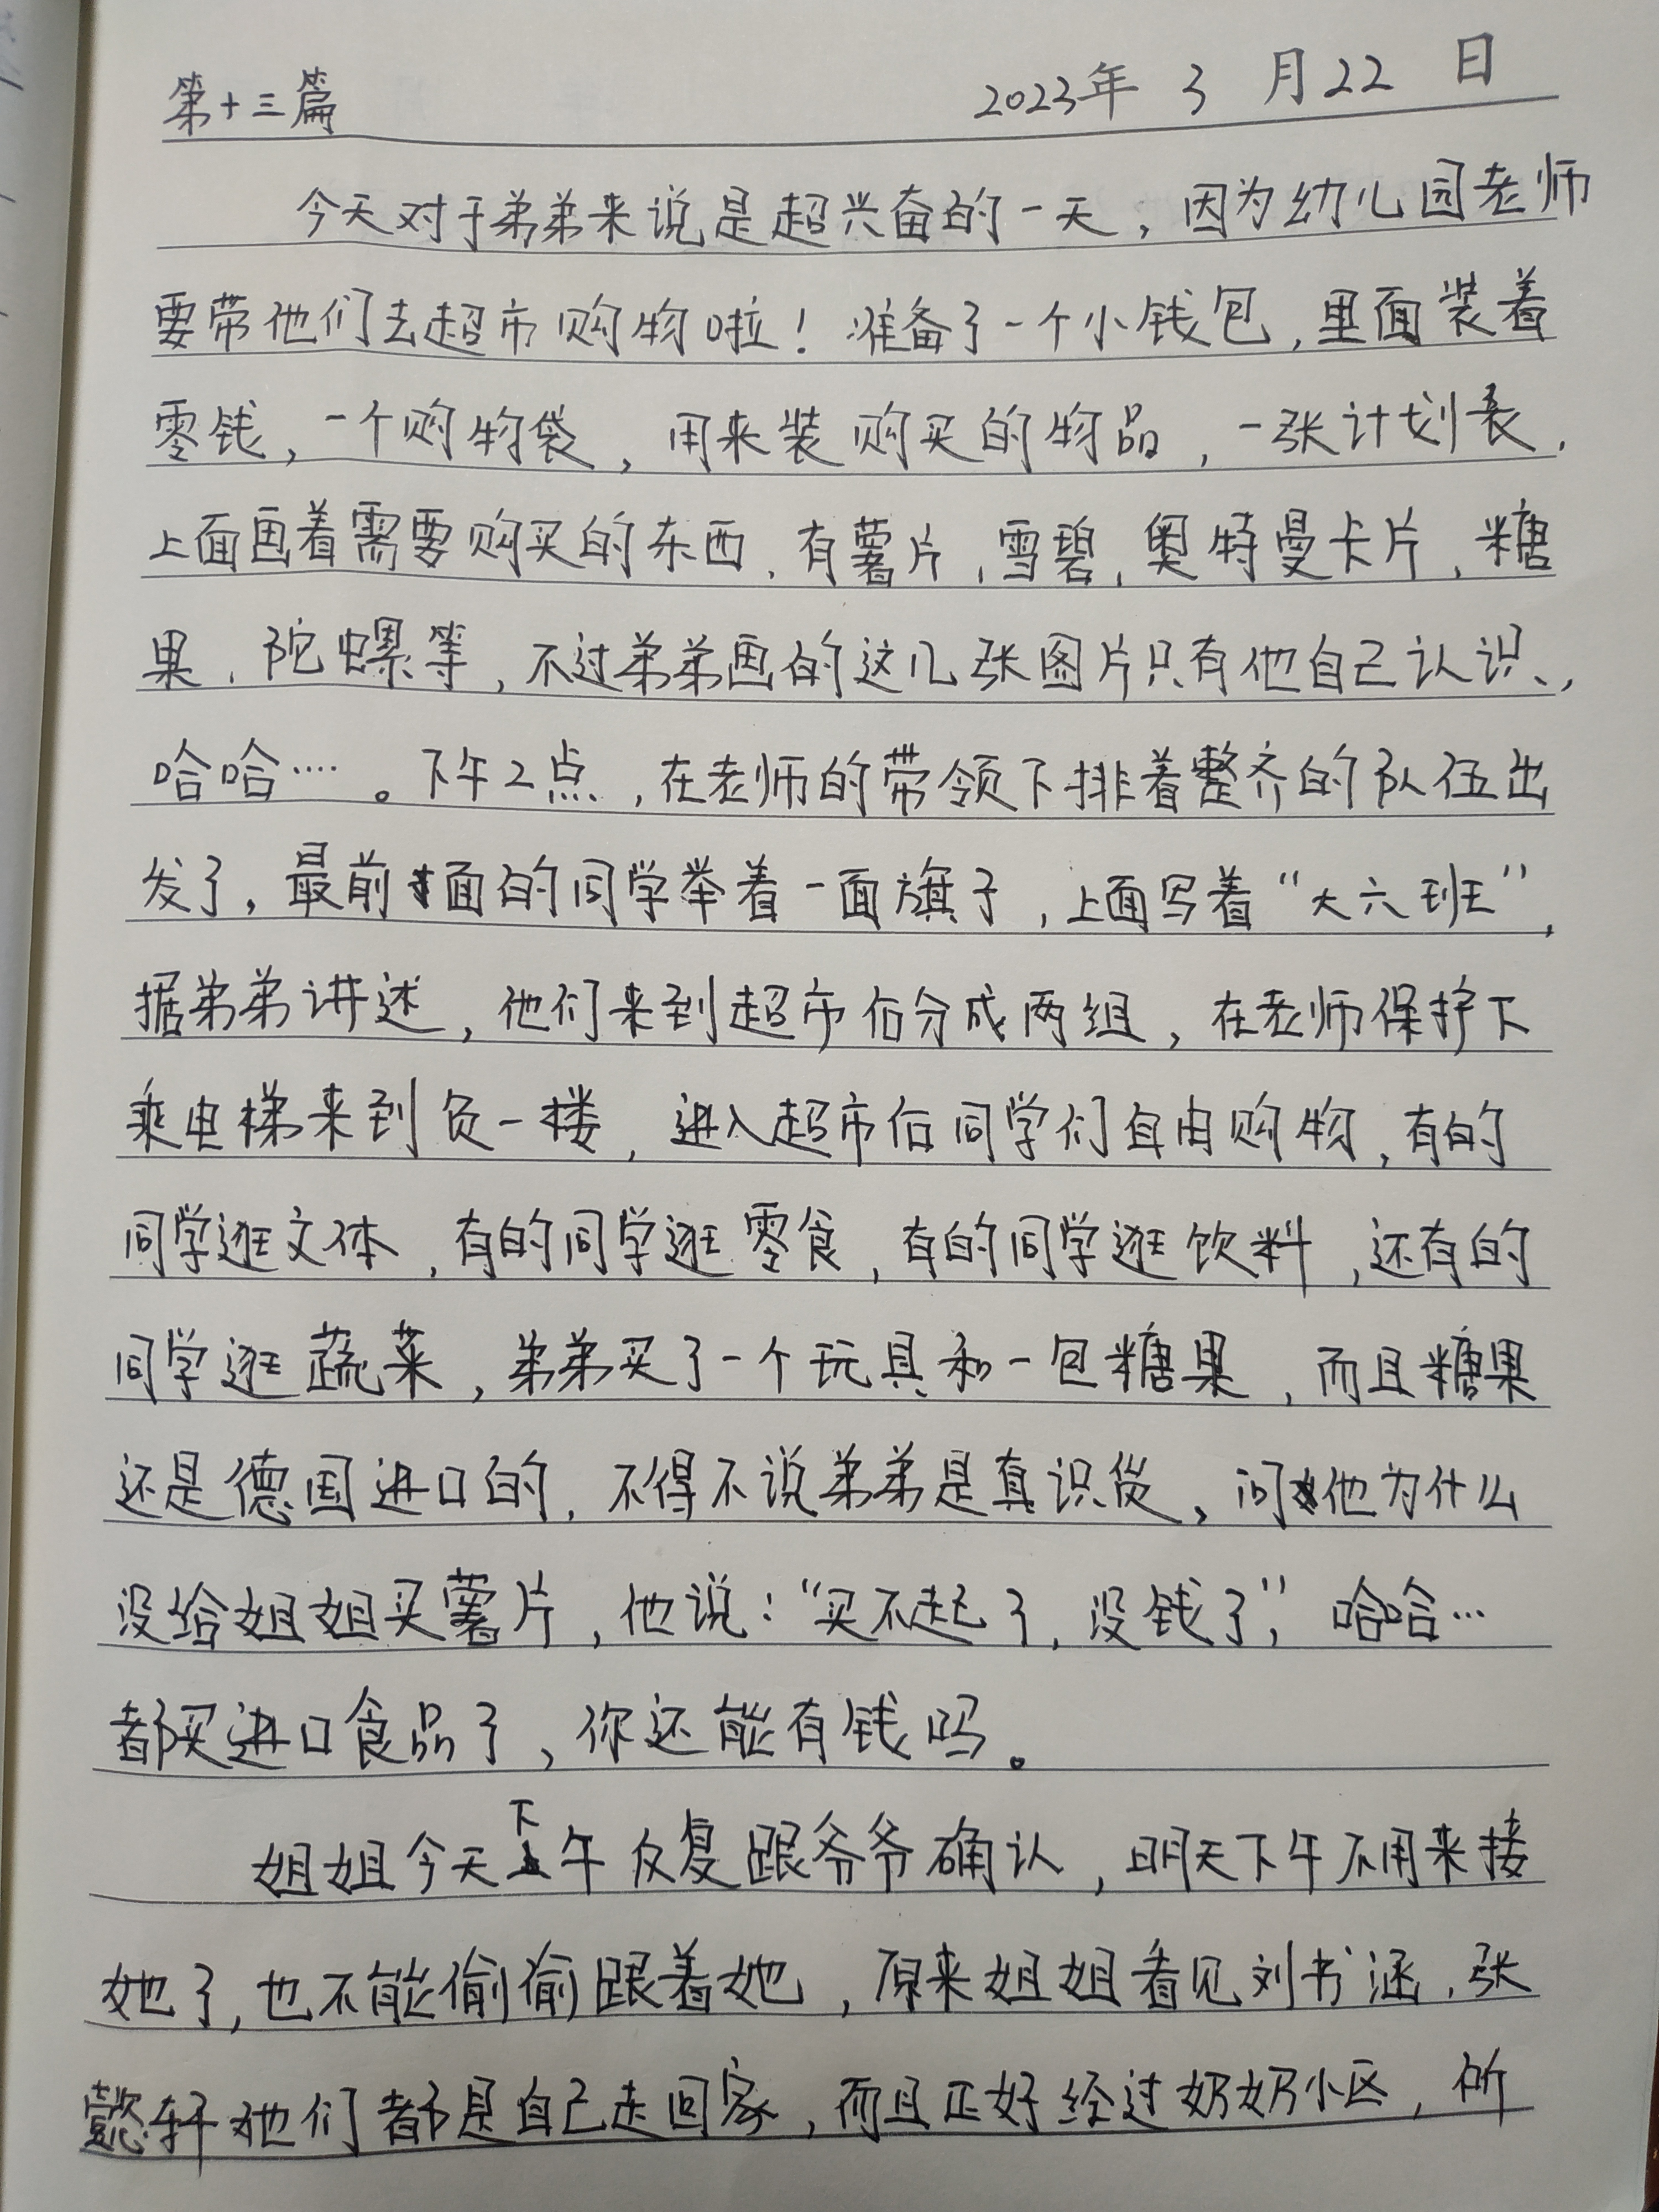 第十三篇 2023年 3 月22 日
今天对于弟弟来说是超兴奋的一天，因为幼儿园老师
要带他们去超市购物啦！准备了一个小钱包，里面装着
零钱，一个购物袋，用来装购买的物品，一张计划表，
上面画着需要购买的东西，有薯片，雪碧，奥特曼卡片，糖
果，陀螺等，不过弟弟画的这几张图片只有他自己认识，
哈哈…。下午2点，在老师的带领下排着整齐的队伍出
发了，最前面的同学举着一面旗子，上面写着“大六班”，
据弟弟讲述，他们来到超市后分成两组，在老师保护下
乘电梯来到负一楼，进入超市后同学们自由购物，有的
同学逛文体，有的同学逛零食，有的同学逛饮料，还有的
同学逛蔬菜，弟弟买了一个玩具和一包糖果，而且糖果
还是德国进口的，不得不说弟弟是真识货，问他为什么
没给姐姐买薯片，他说：“买不起了，没钱了”，哈哈…
都买进口食品了，你还能有钱吗。
姐姐今天下午反复跟爷爷确认，明天下午不用来接
她了，也不能偷偷跟着她，原来姐姐看见刘书涵，张
懿轩她们都是自己走回家，而且正好经过奶奶小区，所